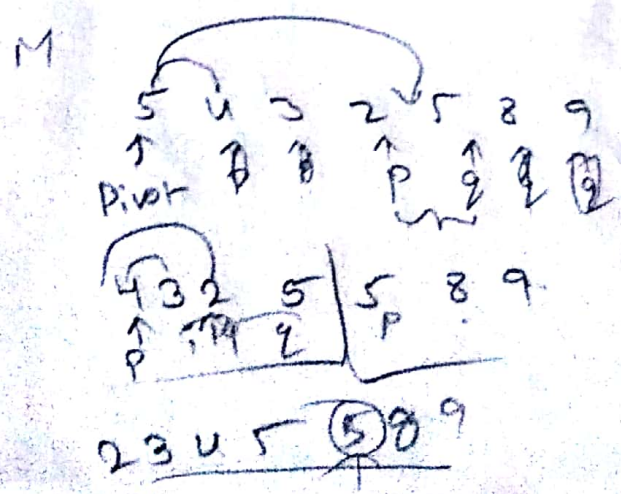 M
5 4 3 2 5 8 9
Pivot p q q
4 3 2 5 | 5 8 9
p q p
2 3 4 5 5 8 9